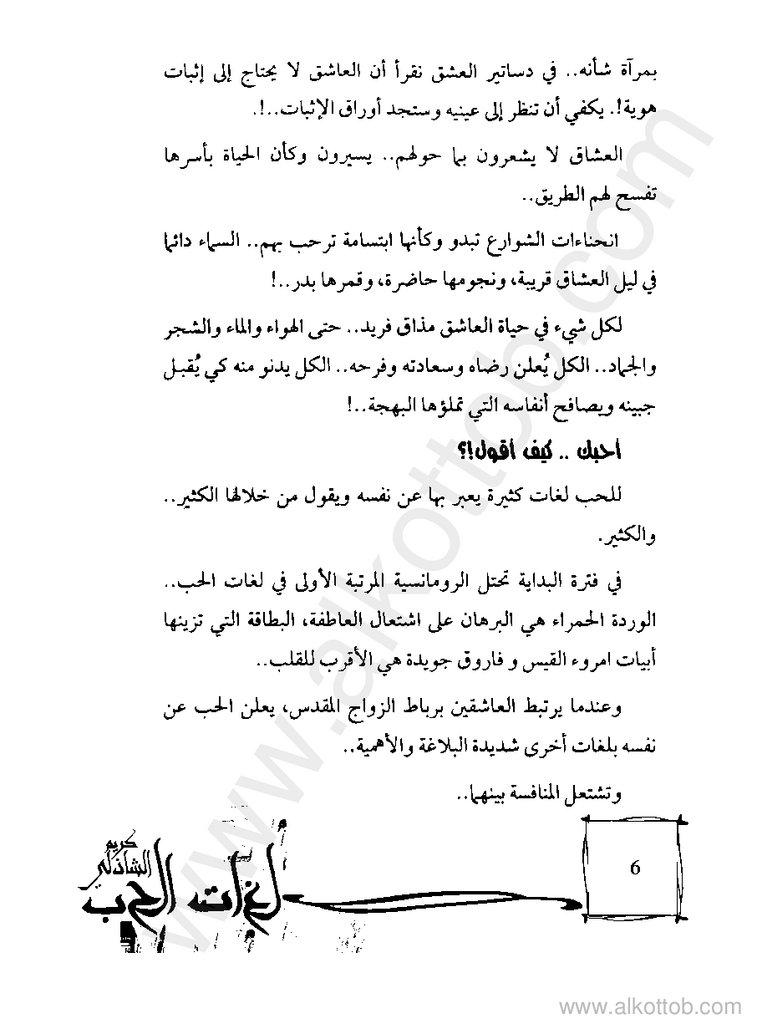 بمرآة شأنه.. في دساتير العشق نقرأ أن العاشق لا يحتاج إلى إثبات
هوية!. يكفي أن تنظر إلى عينيه وستجد أوراق الإثبات..!.
العشاق لا يشعرون بما حولهم.. يسيرون وكأن الحياة بأسرها
تفسح لهم الطريق..
انحناءات الشوارع تبدو وكأنها ابتسامة ترحب بهم.. السماء دائما
في ليل العشاق قريبة، ونجومها حاضرة، وقمرها بدر..!
لكل شيء في حياة العاشق مذاق فريد.. حتى الهواء والماء والشجر
والجماد.. الكل يُعلن رضاه وسعادته وفرحه.. الكل يدنو منه كي يُقبل
جبينه ويصافح أنفاسه التي تملؤها البهجة..!
أحبك .. كيف أقول!؟
للحب لغات كثيرة يعبر بها عن نفسه ويقول من خلالها الكثير..
والكثير.
في فترة البداية تحتل الرومانسية المرتبة الأولى في لغات الحب..
الوردة الحمراء هي البرهان على اشتعال العاطفة، البطاقة التي تزينها
أبيات امروء القيس و فاروق جويدة هي الأقرب للقلب..
وعندما يرتبط العاشقين برباط الزواج المقدس، يعلن الحب عن
نفسه بلغات أخرى شديدة البلاغة والأهمية..
وتشتعل المنافسة بينهما..
6
كريم
الشاذلي
لغات الحب
www.alkottob.com
www.alkottob.com